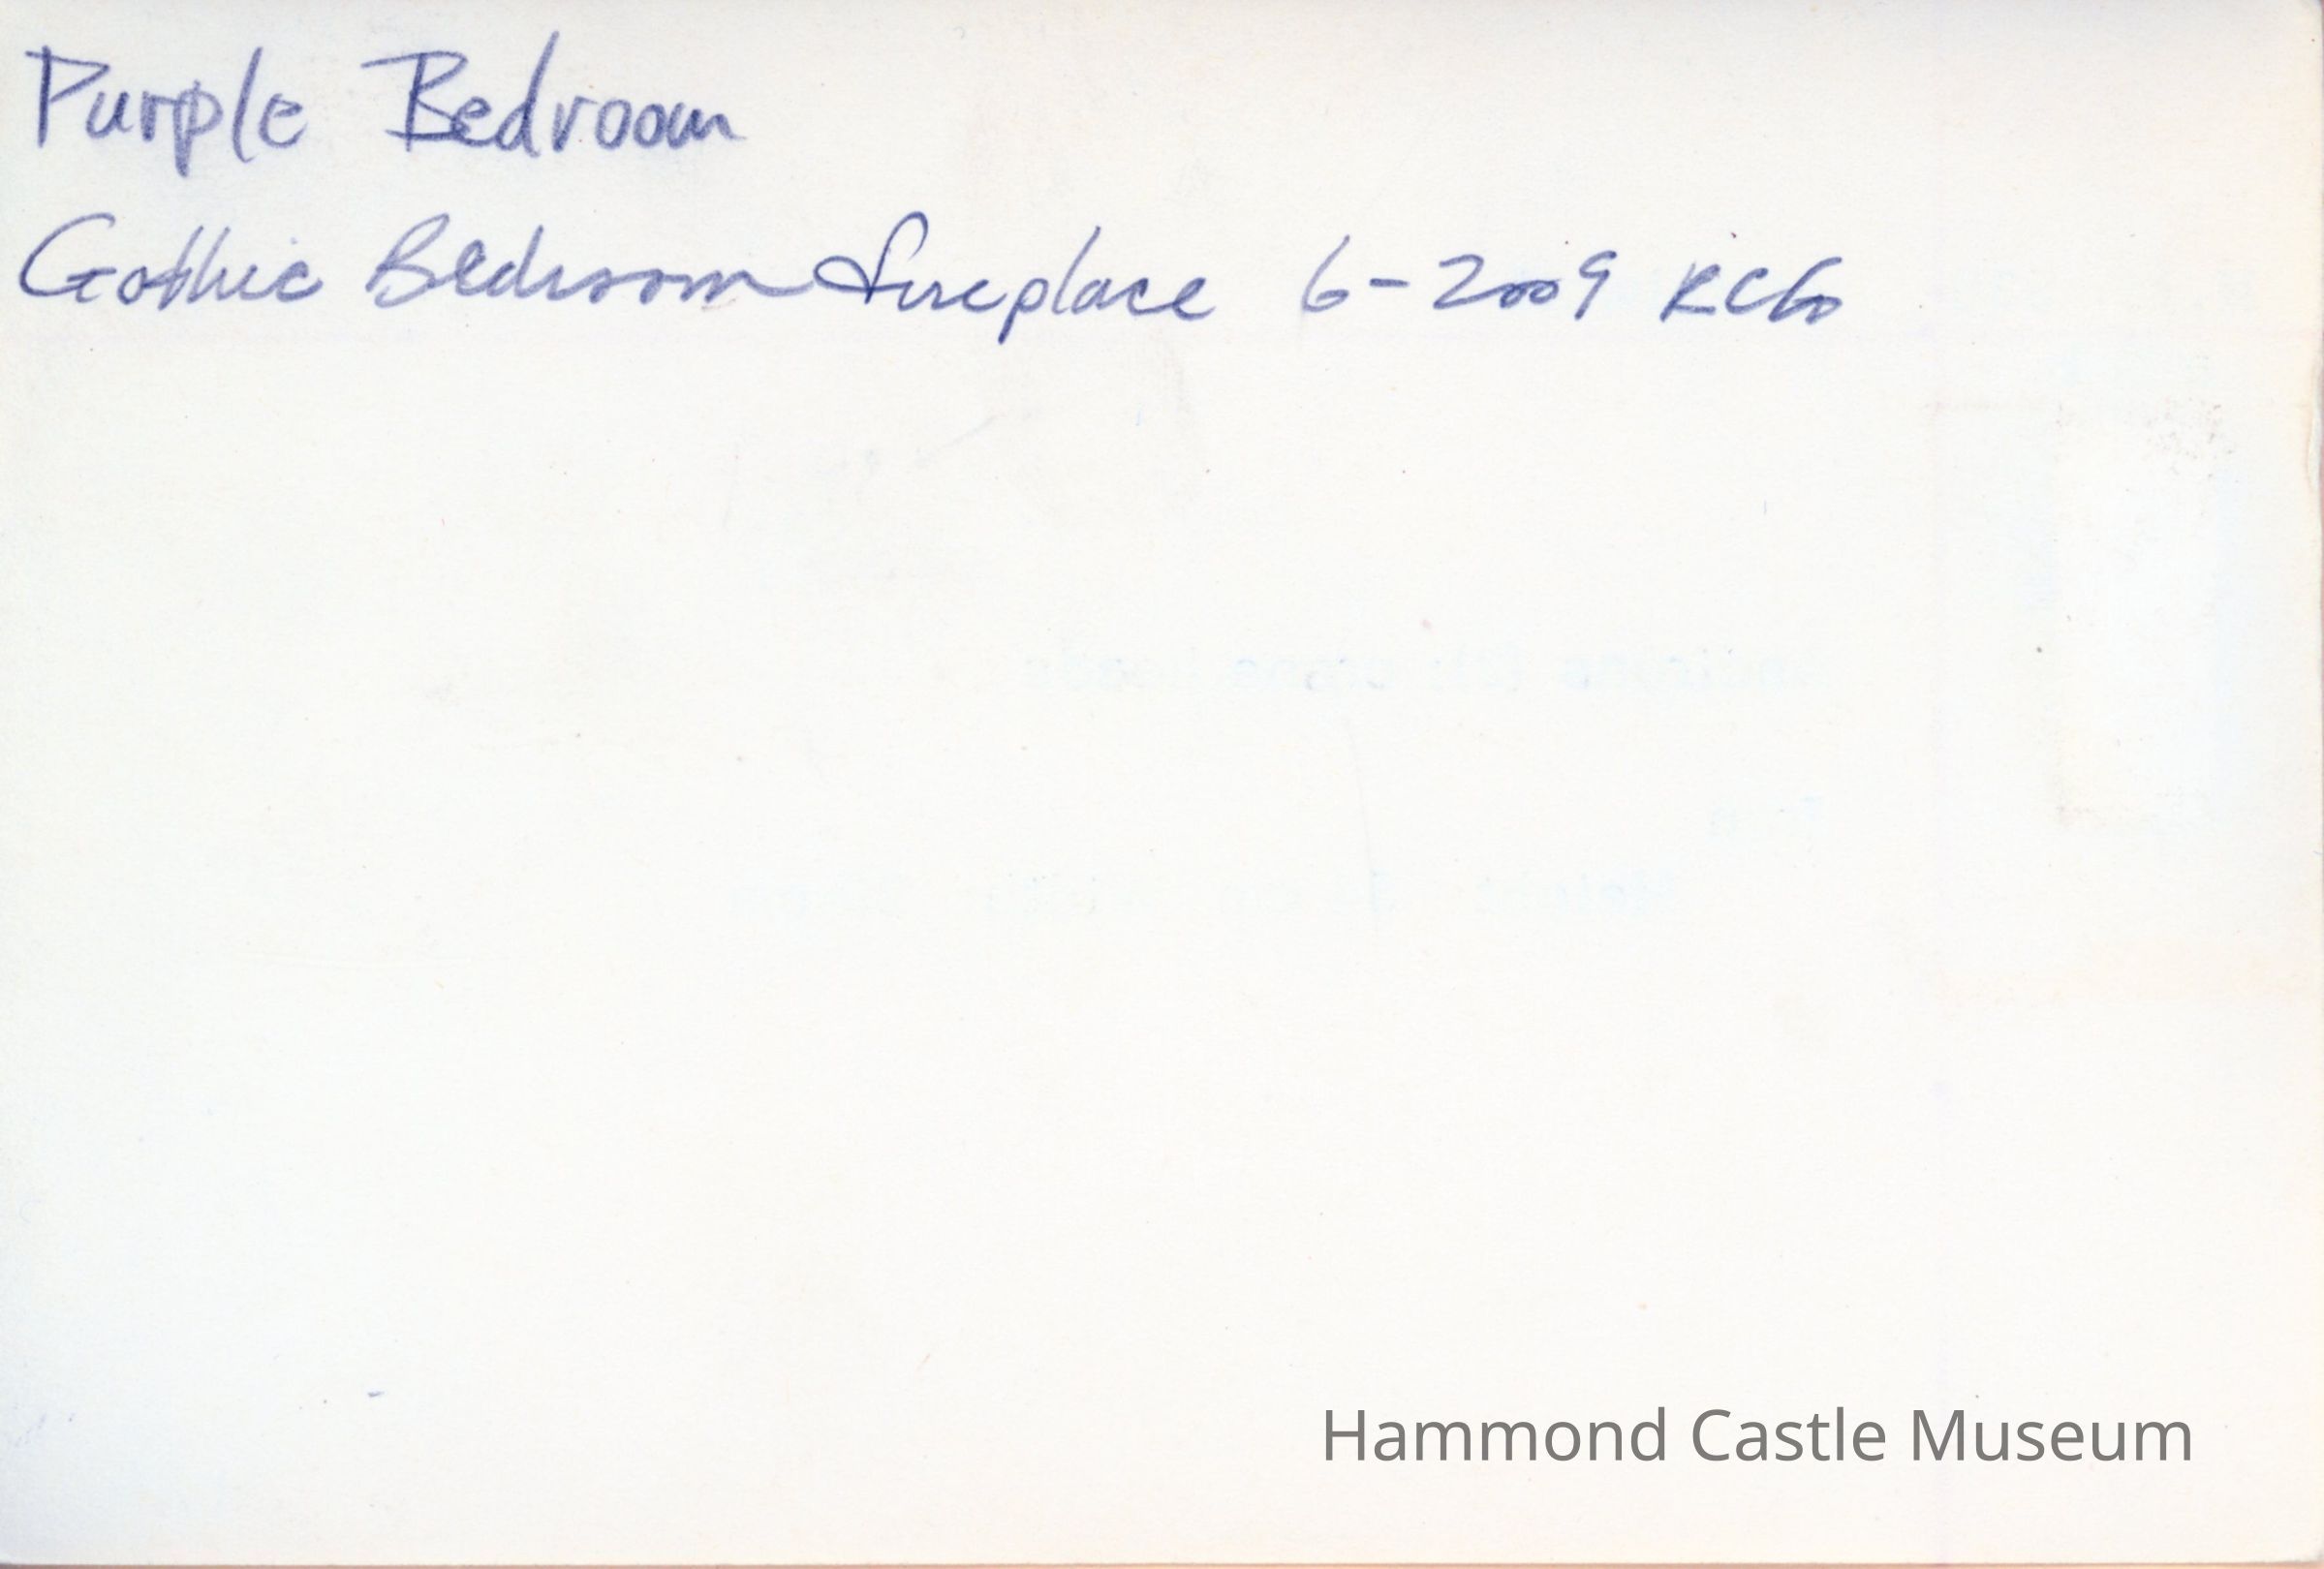 Purple Bedroom
Gothic Bedroom fireplace 6-2009 RCG
Hammond Castle Museum